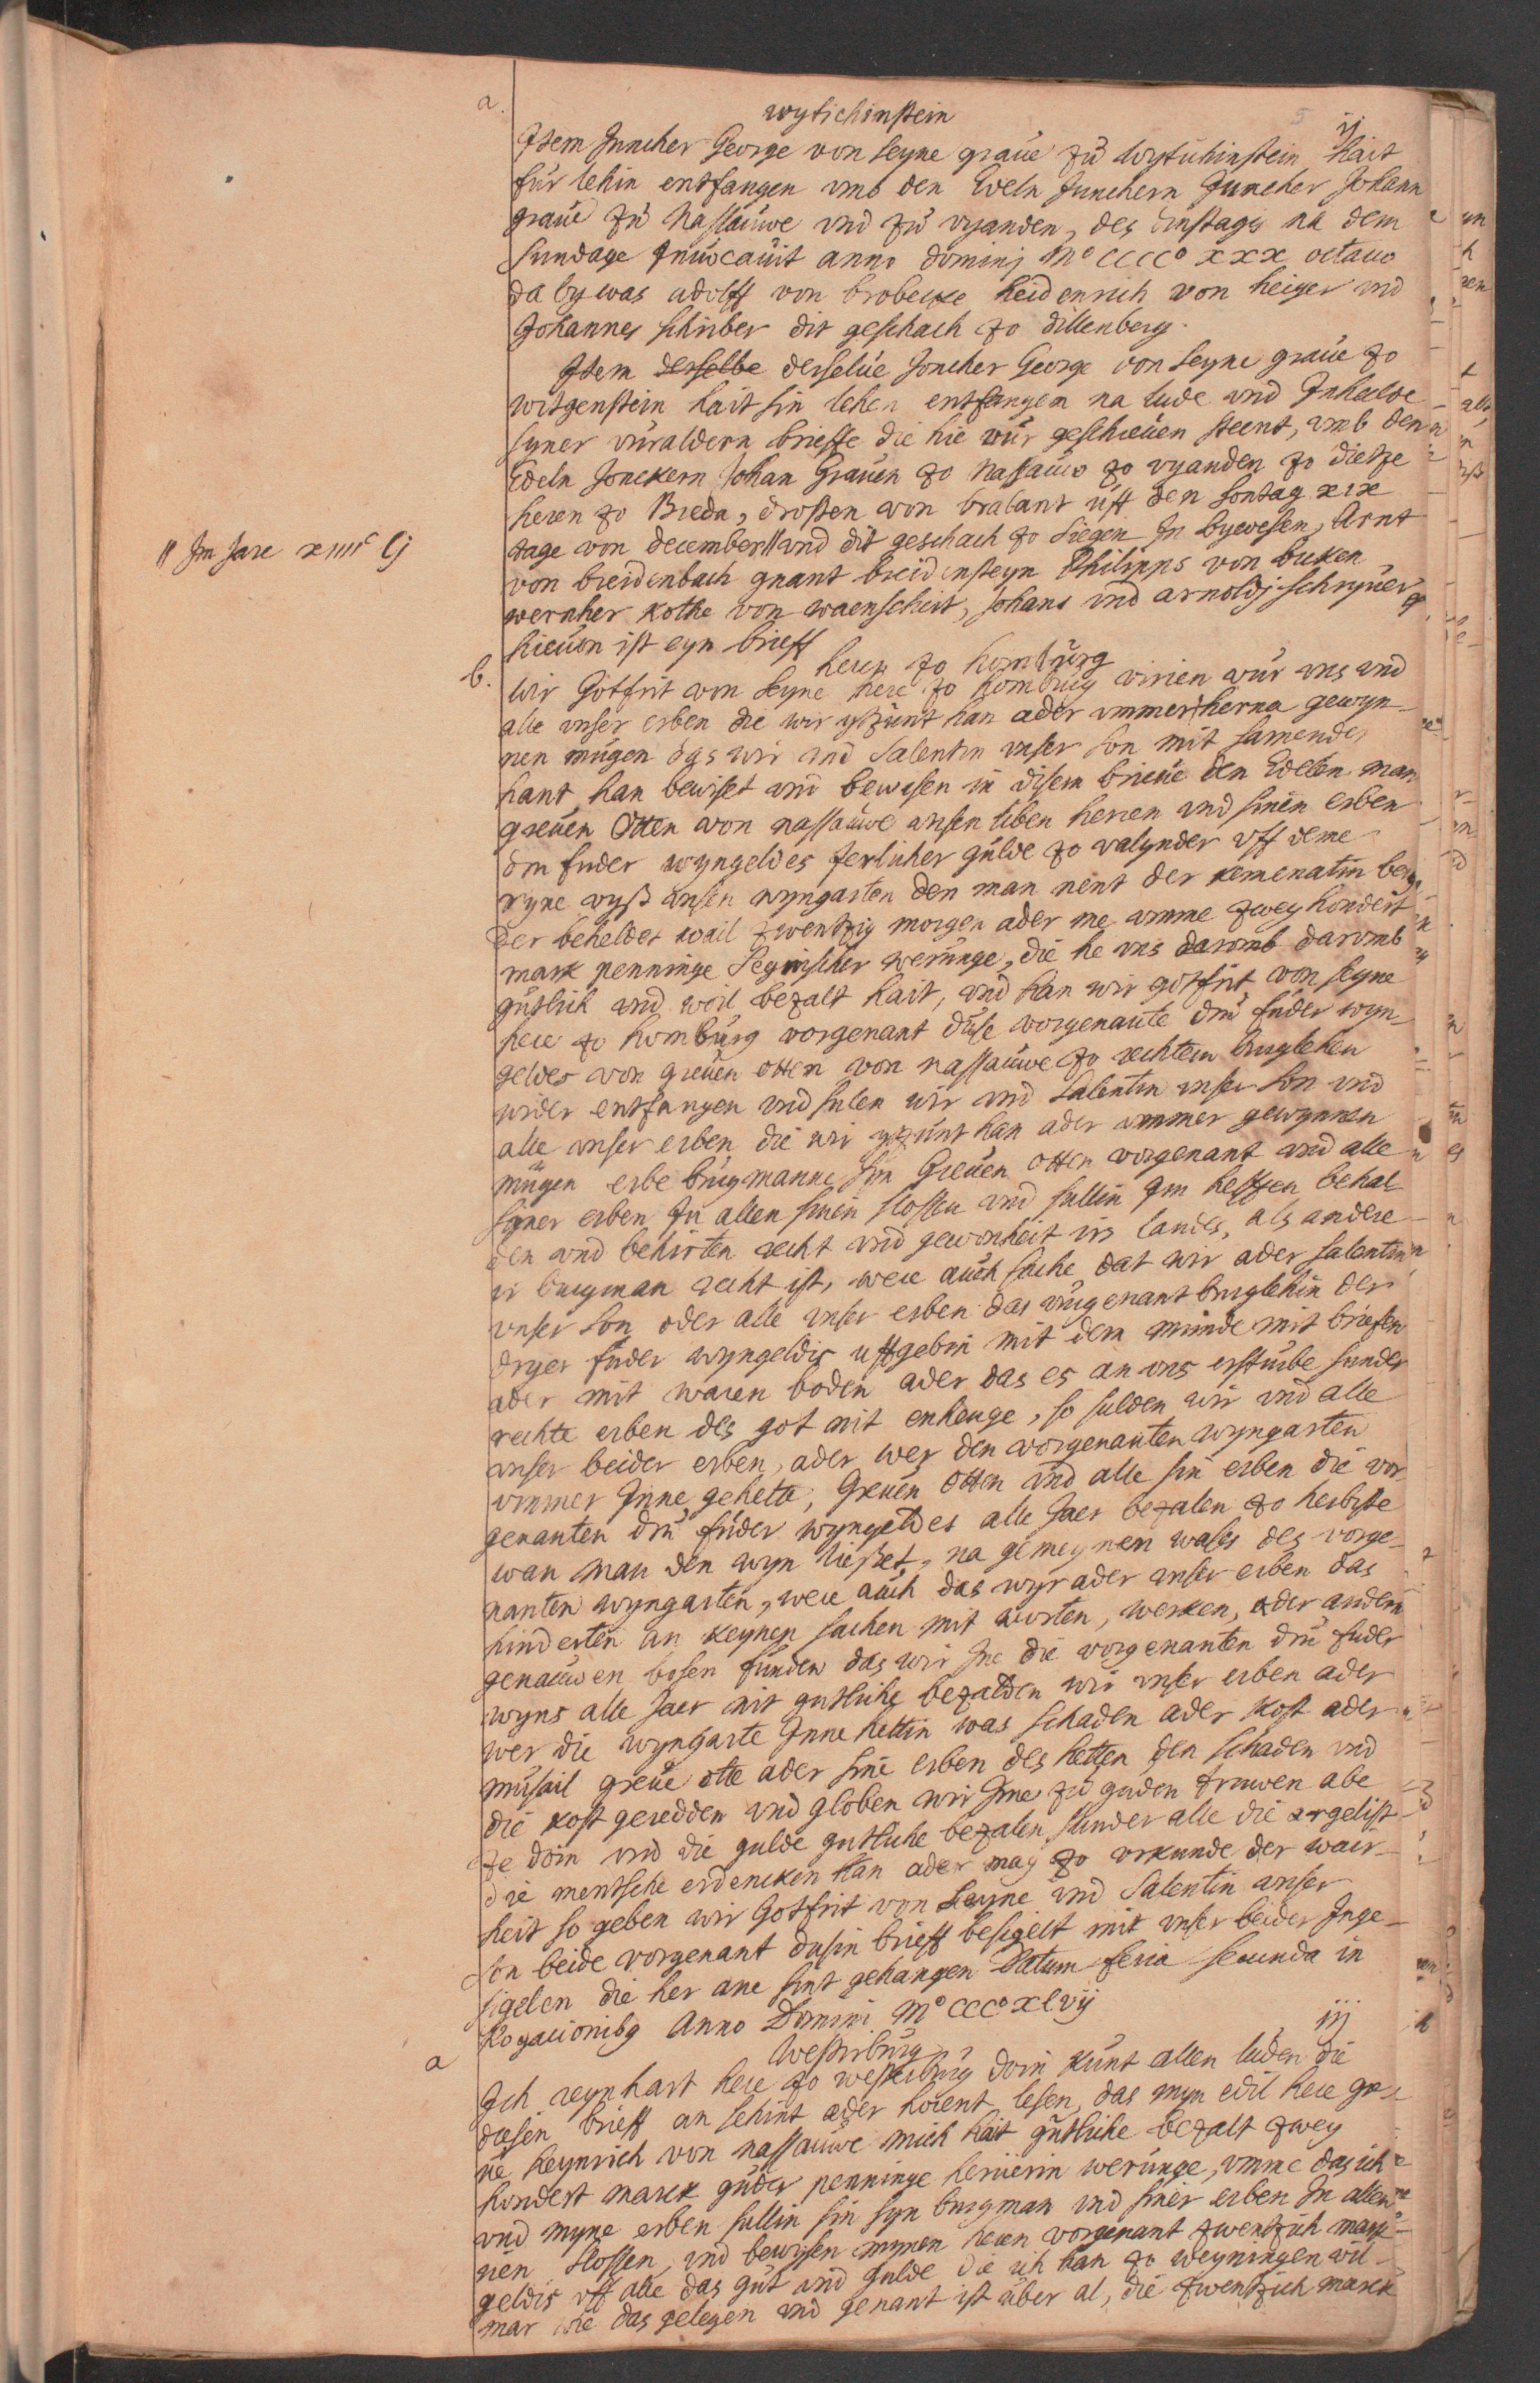 a.
wytichinstein
ij
Item Juncher George von seyne graue zu wytichinstein hait
für lehin entfangen vmb den Edeln Junchern Juncher Johann
graue zu Nassauwe vnd zu vyanden, des dinstags na dem
Sundage Inuocauit anno dominj Mº CCCCº XXX octauo
da by was adolff von brobecke heidenrich von heiger vnd
Johannes schriber dit geschach zo dillenberg.
Item desselbe derselue Joncher George von seyne graue zo
witgenstein hait sin lehen entfangen na lude vnd Inhalde
syner vuraldern brieffe die hie vur geschreuen steent, vmb den
Edeln Jonckern Johan Grauen zo Nassauw zo vyanden zo dietze
heren zo Breda, drosten von brabant uff den sontag xix
tage von december || vnd dit geschach zo siegen In bywesen, Arnt
|| Im jare xiiiiᶜ Lj
von breidenbach gnant breidensteyn Philipps von bicken
wernher kothe von waenscheit, Johans vnd arnoldj schryuer
hieuon ist eyn brieff
b.
heren zo homburg
Wir Gotfrit von Seyne here zo homburg virien vur vns vnd
alle vnser erben die wir ytzunt han ader vmmer herna gewyn-
nen mugen das wir vnd Salentin vnser son mit samender
hant han bewiset vnd bewisen in disem brieue den Edelen man
greuen Otten von nassauwe vnsen liben herren vnd sinen erben
dru fuder wyngeldes jerlicher gulde zo valynder uff deme
ryne vyß vnsen wyngarten den man nent der kemenatin berg
der beheldet wail zwentzig morgen ader me vmme zwey hondert
mark penninge Seginscher werunge, die he vns daromb daromb
gutlich vnd wail bezalt hait, vnd han wir gotfrit von seyne
here zo homburg vorgenant duse vorgenante dru fuder wyn-
geldes von greuen otten von nassauwe zo rechtem burglehen
wider entfangen vnd sulen wir vnd Salentin vnser son vnd
alle vnser erben die wir ytzunt han ader vmmer gewynnen
mugen erbe burgmanne sin Greuen otten vorgenant vnd alle
syner erben zu allen sinen slossen vnd sullin Im helffen behal-
den vnd behirten recht vnd gewonheit irs landes, als andere
ir burgman recht ist, were auch sache dat wir ader salentin
vnser son oder alle vnser erben das vurgenant burglehin der
dryer fuder wyngeldis uffgebin mit dem munde mit briefen
ader mit waren boden ader das es an vns ersturbe sunder
rechte erben des got nit enhenge, so sulden wir vnd alle
vnser beider erben, ader wer den vorgenanten wyngarten
vmmer Inne gehette, Greuen Otten vnd alle sin erben die vor
genanten dru fuder wyngeldes alle Jaer bezalen zo herbste
wan man den wyn lieset, na gemeynem wasß des vorge-
nanten wyngarten, were auch das wyr ader vnser erben das
hinderten an keynen sachen mit worten, werken, ader andern
genauwen bosen funden das wir Ine die vorgenanten dru fuder
wyns alle Jaer nit gutliche bezalden wir vnser erben ader
wer die wyngarte Inne hettin was schaden ader kost ader
musail greue otte ader sine erben des hetten, den schaden vnd
die kost geredden vnd globen wir Ime zu guden truwen abe
ze doin vnd die gulde gutliche bezalen sunder alle die argelist
die mentsche erdencken kan ader mag zo vrkunde der wair-
heit so geben wir Gotfrit von Seyne vnd Salentin vnser
son beide vorgenant dusin brieff besigelt mit vnser beider Inge-
sigelen die her ane sint gehangen Datum feria secunda in
Rogacionibus Anno Domini Mº CCCº XLvij
a
iij
Westirburg
Ich reynhart here zo westerburg doin kunt allen luden die
diesen brieff an sehint ader horent lesen, das myn edil here gre-
ue heynrich von nassauwe mich hait gutliche bezalt zwey
hondert marck guder penninge heruerin werunge, vmme das ich
vnd myne erben sullin sin syn burgman vnd siner erben In allen
iren slossen, vnd bewisen mynen heren vorgenant zwentzich marck
geldis uff alle das gut vnd gulde die ich han zo weyningen wil-
mar wie das gelegen vnd genant ist uber al, die zwentzich marck